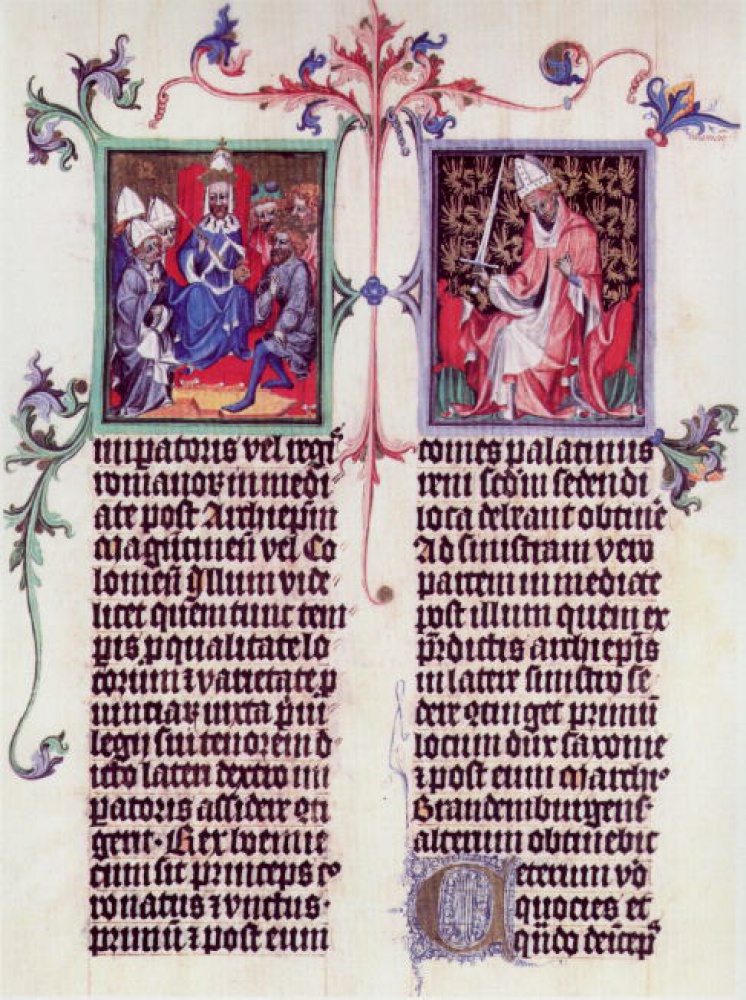 mpatoris vel regis
romanoꝝ inmedi
ate post Archiepm̄
Magūtineñ vel Co
lonieñ ꝯ Illum vide
licet quem tunc tem
pis p qualitate lo
corum ⁊ varietate p
uinciaꝝ iuxta p̄ui
legij sui tenorem d
icto lateri dextro im
patoris assidere ꝯtī
gerit. Rex boemie
cum sit princeps co
ronatus ⁊ vnctus.
primū ⁊ post eum
comes palatinus
reni scd̄m sedendi
loca debeant obtine
Ad sinistram vero
partem inmediate
post illum quem ex
p̄dictis archiep̄is
in latere sinistro se
dere ꝯtinget primū
locum dux saxonie
⁊ post eum Marchio
Brandemburgens
alterum obtinebit
Ceterum vo
quocies et
qn̄do deīceps